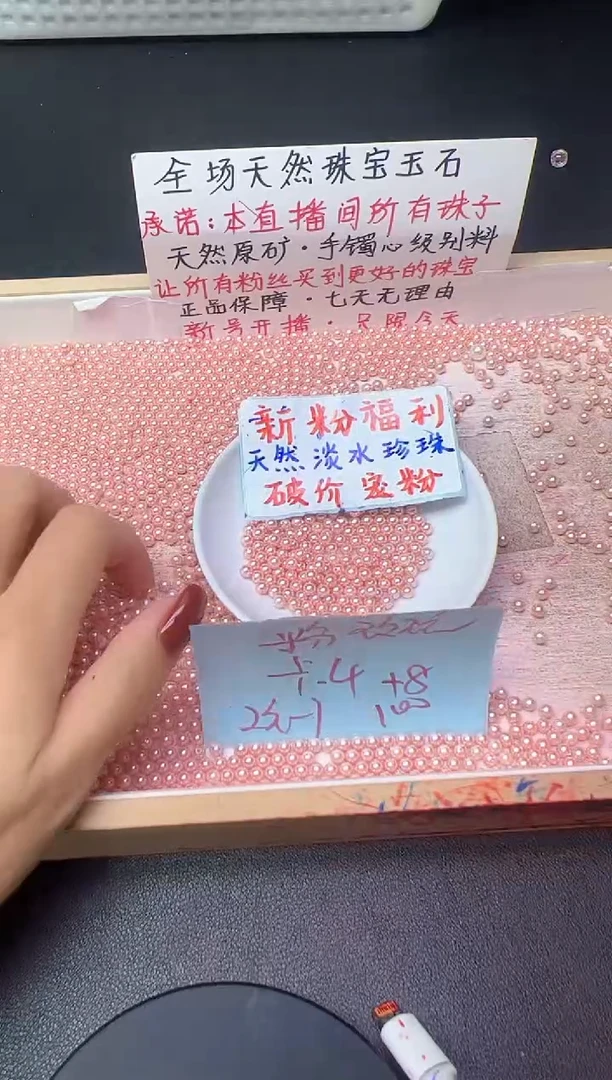 全场天然珠宝玉石
承诺:本直播间所有珠子
天然原矿·手镯心级别料
让所有粉丝买到更好的珠宝
正品保障·七天无理由
新号开播·只限今天
新粉福利
天然淡水珍珠
破价宠粉
4 +8